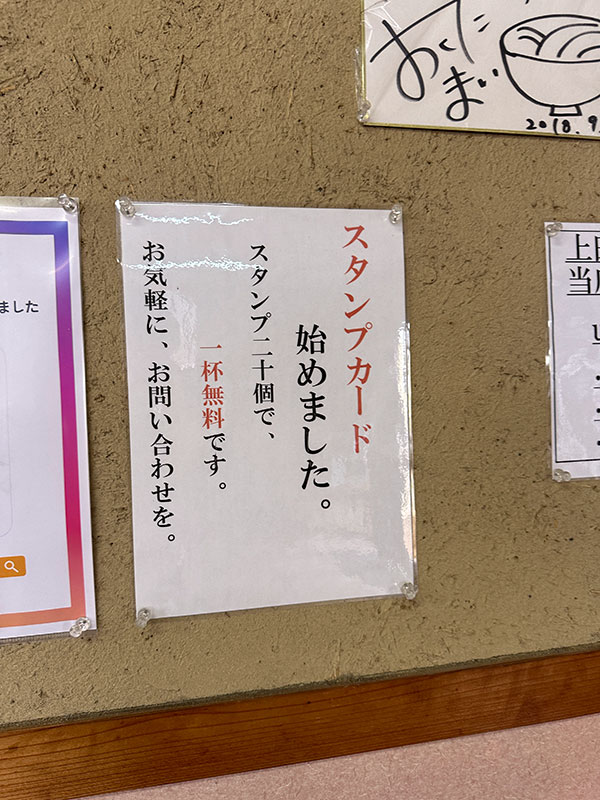 スタンプカード
始めました。
スタンプ二十個で、
一杯無料です。
お気軽に、お問い合わせを。
ました
2018.9.